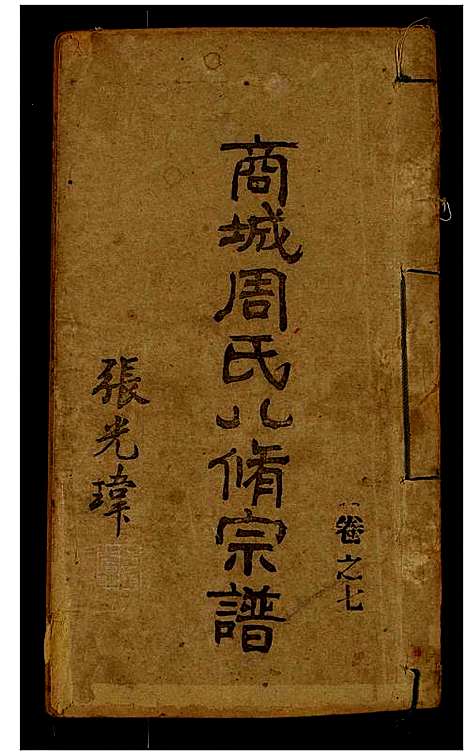 卷之七
商城周氏八脩宗譜
張光瑋